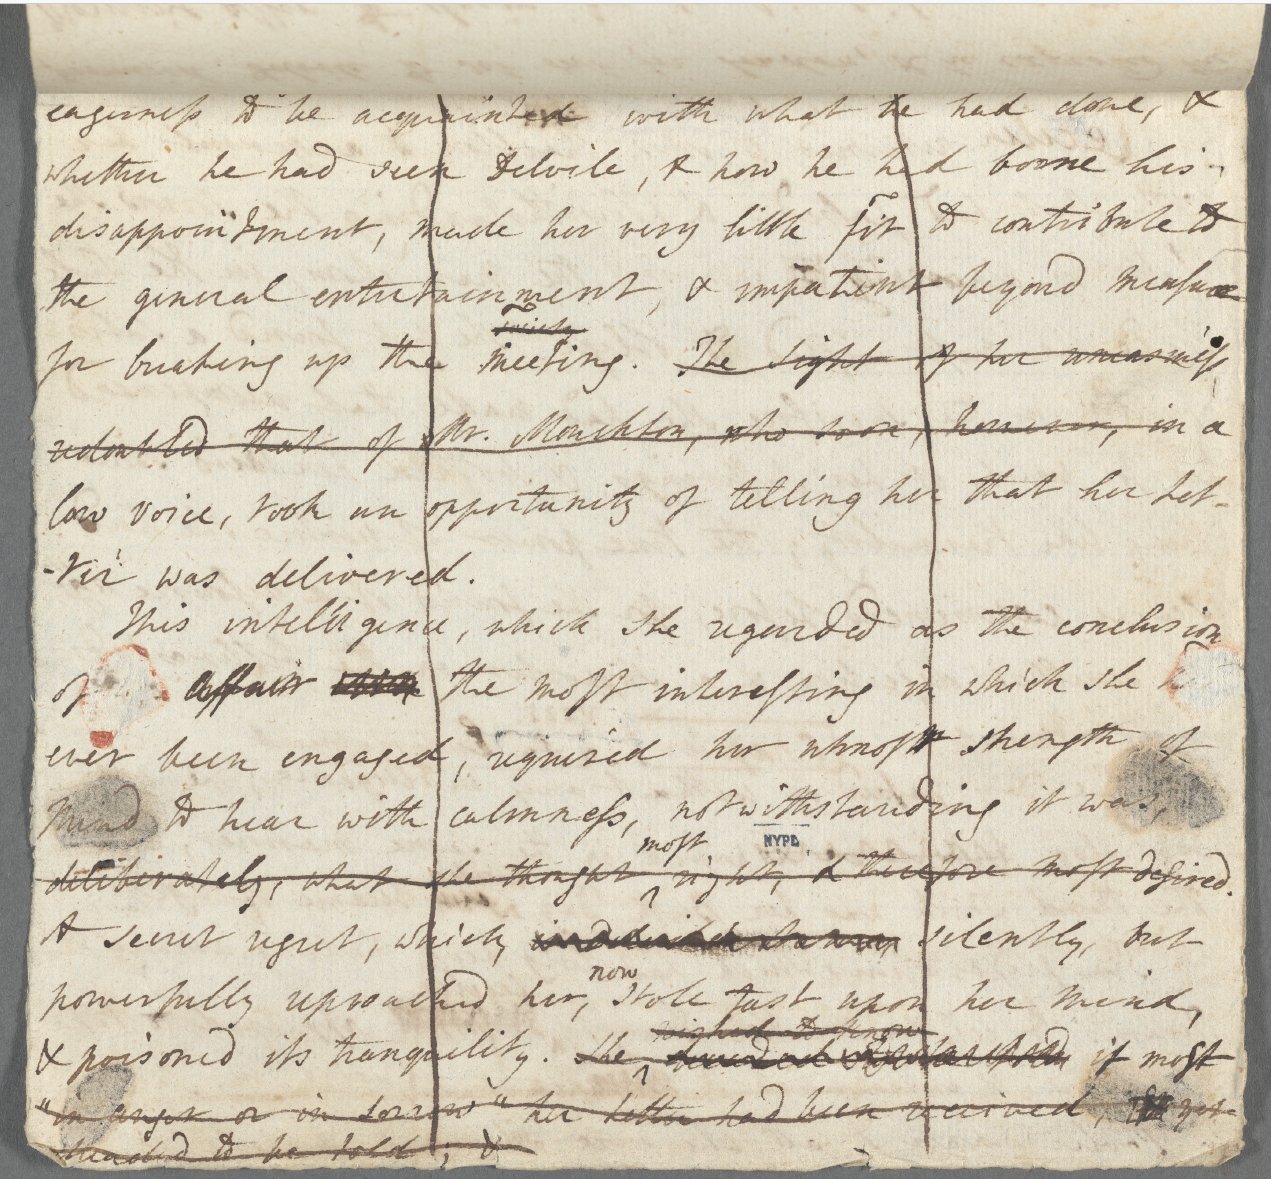 eagerness to be acquainted with what he had done, &
whether he had seen Delvile, & how he had borne his
disappointment, made her very little fit to contribute to
the general entertainment, & impatient beyond measure
society
for breaking up the meeting. The sight of her uneasiness
redoubled that of Mr. Monckton, who soon, however, in a
low voice, took an opportunity of telling her that her Let-
-ter was delivered.
This intelligence, which she regarded as the conclusion
of affair the most interesting in which she
ever been engaged, required her utmost strength of
Mind to hear with calmness, notwithstanding it was,
NYPL
most
deliberately, what she thought right, & therefore most desired.
A secret regret, which, silently, but
now
powerfully reproached her, stole fast upon her Mind,
wished to know
& poisoned its tranquility. She if most
"in anger or in sorrow" her letter had been received, yet
dreaded to be told; &